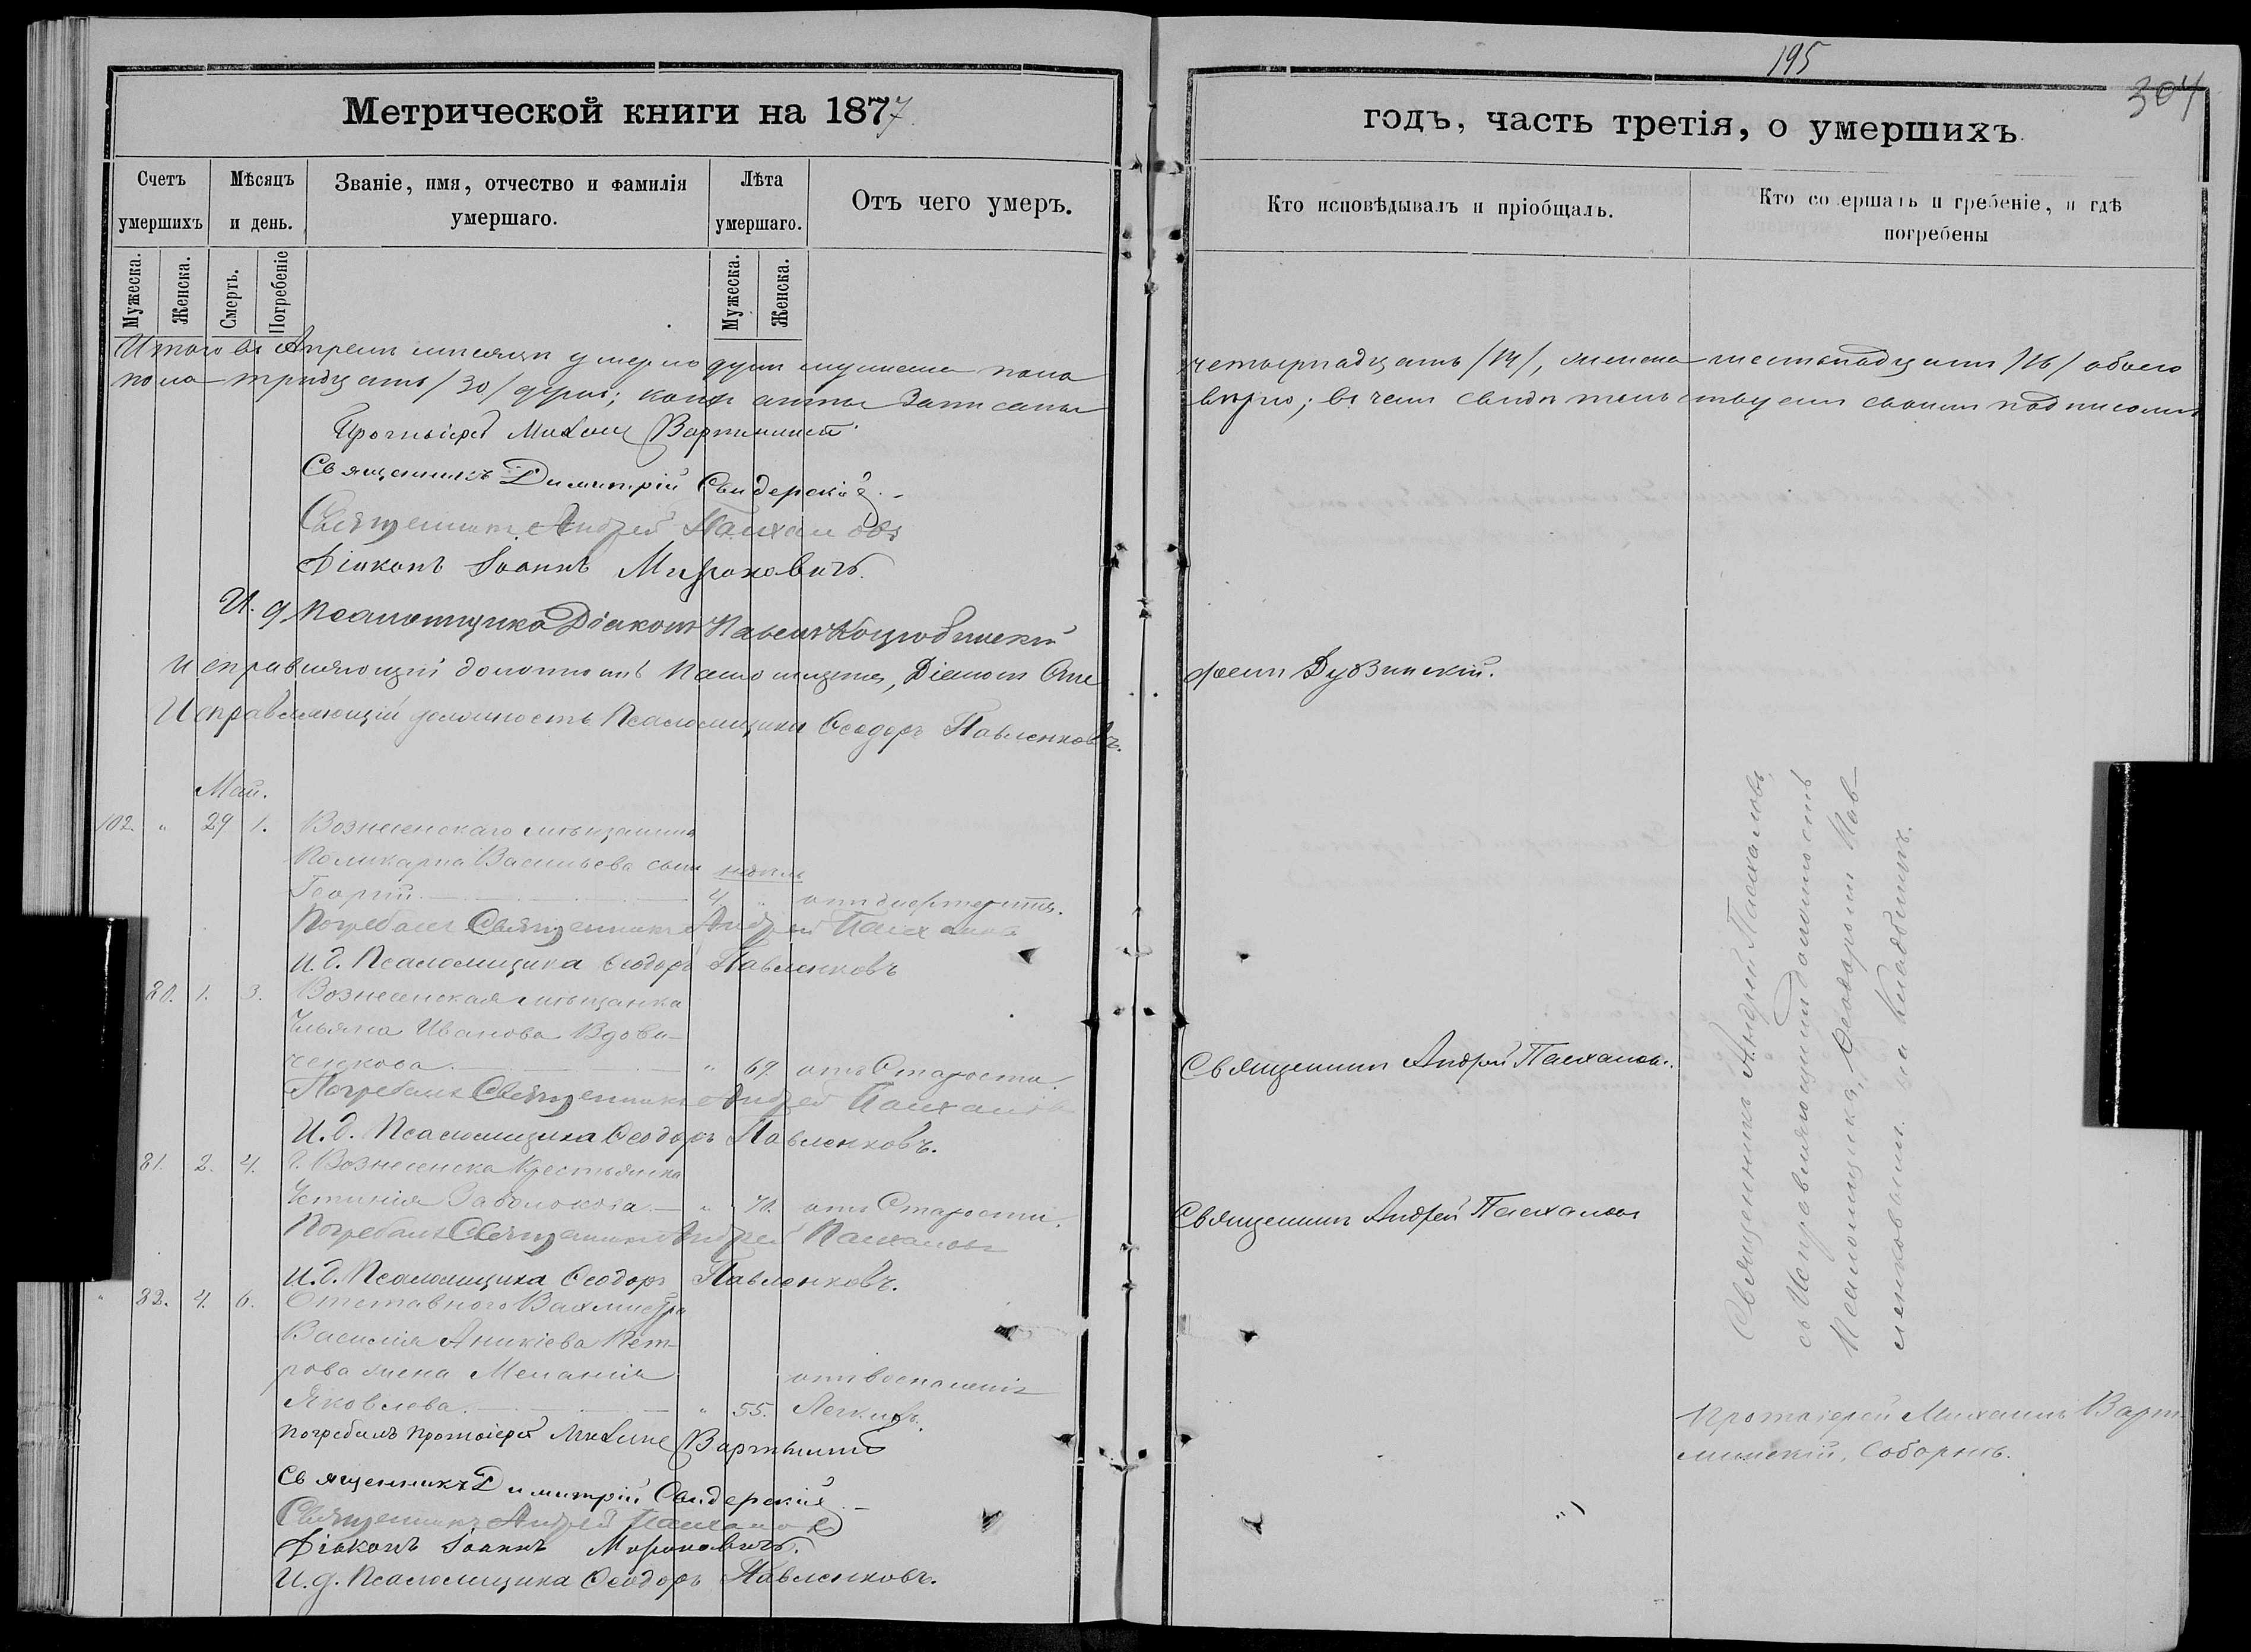 195
304
Метрической книги на 1877
годъ, часть третія, о умершихъ.
Счетъ умершихъ
Мѣсяцъ и день.
Званіе, имя, отчество и фамилія умершаго.
Лѣта умершаго.
Отъ чего умеръ.
Кто исповѣдывалъ и пріобщалъ.
Кто совершалъ погребеніе, и гдѣ погребены
Мужеска.
Женска.
Смерть.
Погребеніе
Мужеска.
Женска.
Итого въ Апрелѣ мѣсяцѣ умерло душъ мужеска пола четырнадцать /14/, женска шестнадцать /16/ обоего
пола тридцать /30/ душъ; акты записаны вѣрно; въ чемъ свидѣтельствуемъ своимъ подписомъ
Протоіерей Михаилъ Вартминскій
Священникъ Димитрій Свидерскій.
Священникъ Андрей Пасхаловъ
Діаконъ Іоаннъ Мироновичъ.
И. д. Псаломщика Діаконъ Павелъ Коцюбинскій
Исправляющій должность Псаломщика, Діаконъ Стефанъ Дузинскій.
Исправляющій должность Псаломщика Ѳеодоръ Павленковъ.
Май.
102. " 29 1. Вознесенскаго мѣщанина
Поликарпа Васильева сынъ недѣль
Георгій. 4 " отъ дифтерита.
Погребалъ Священникъ Андрей Пасхаловъ
И. д. Псаломщика Ѳеодоръ Павленковъ
80. 1. 3. Вознесенская мѣщанка
Ульяна Иванова Вдови-
ченкова " 69. отъ Старости. Священникъ Андрей Пасхаловъ.
Погребалъ Священникъ Андрей Пасхаловъ
И. д. Псаломщика Ѳеодоръ Павленковъ.
81. 2. 4. г. Вознесенска Крестьянка
Устинія Заболокова " 70. отъ Старости. Священникъ Андрей Пасхаловъ
Погребалъ Священникъ Андрей Пасхаловъ
И. д. Псаломщика Ѳеодоръ Павленковъ.
Священникъ Андрей Пасхаловъ,
съ Исправляющимъ должность
Псаломщика, Ѳеодоромъ Пав-
ленковымъ. на Кладбищѣ.
" 82. 4. 6. Отставного Вахмистра
Василія Аникіева Пет-
рова жена Меланія отъ воспаленія
Яковлева. " 55. Легкихъ. Протоіерей Михаилъ Варт-
минскій, Соборнѣ.
Погребалъ Протоіерей Михаилъ Вартминскій
Священникъ Димитрій Свидерскій
Священникъ Андрей Пасхаловъ
Діаконъ Іоаннъ Мироновичъ.
И. д. Псаломщика Ѳеодоръ Павленковъ.